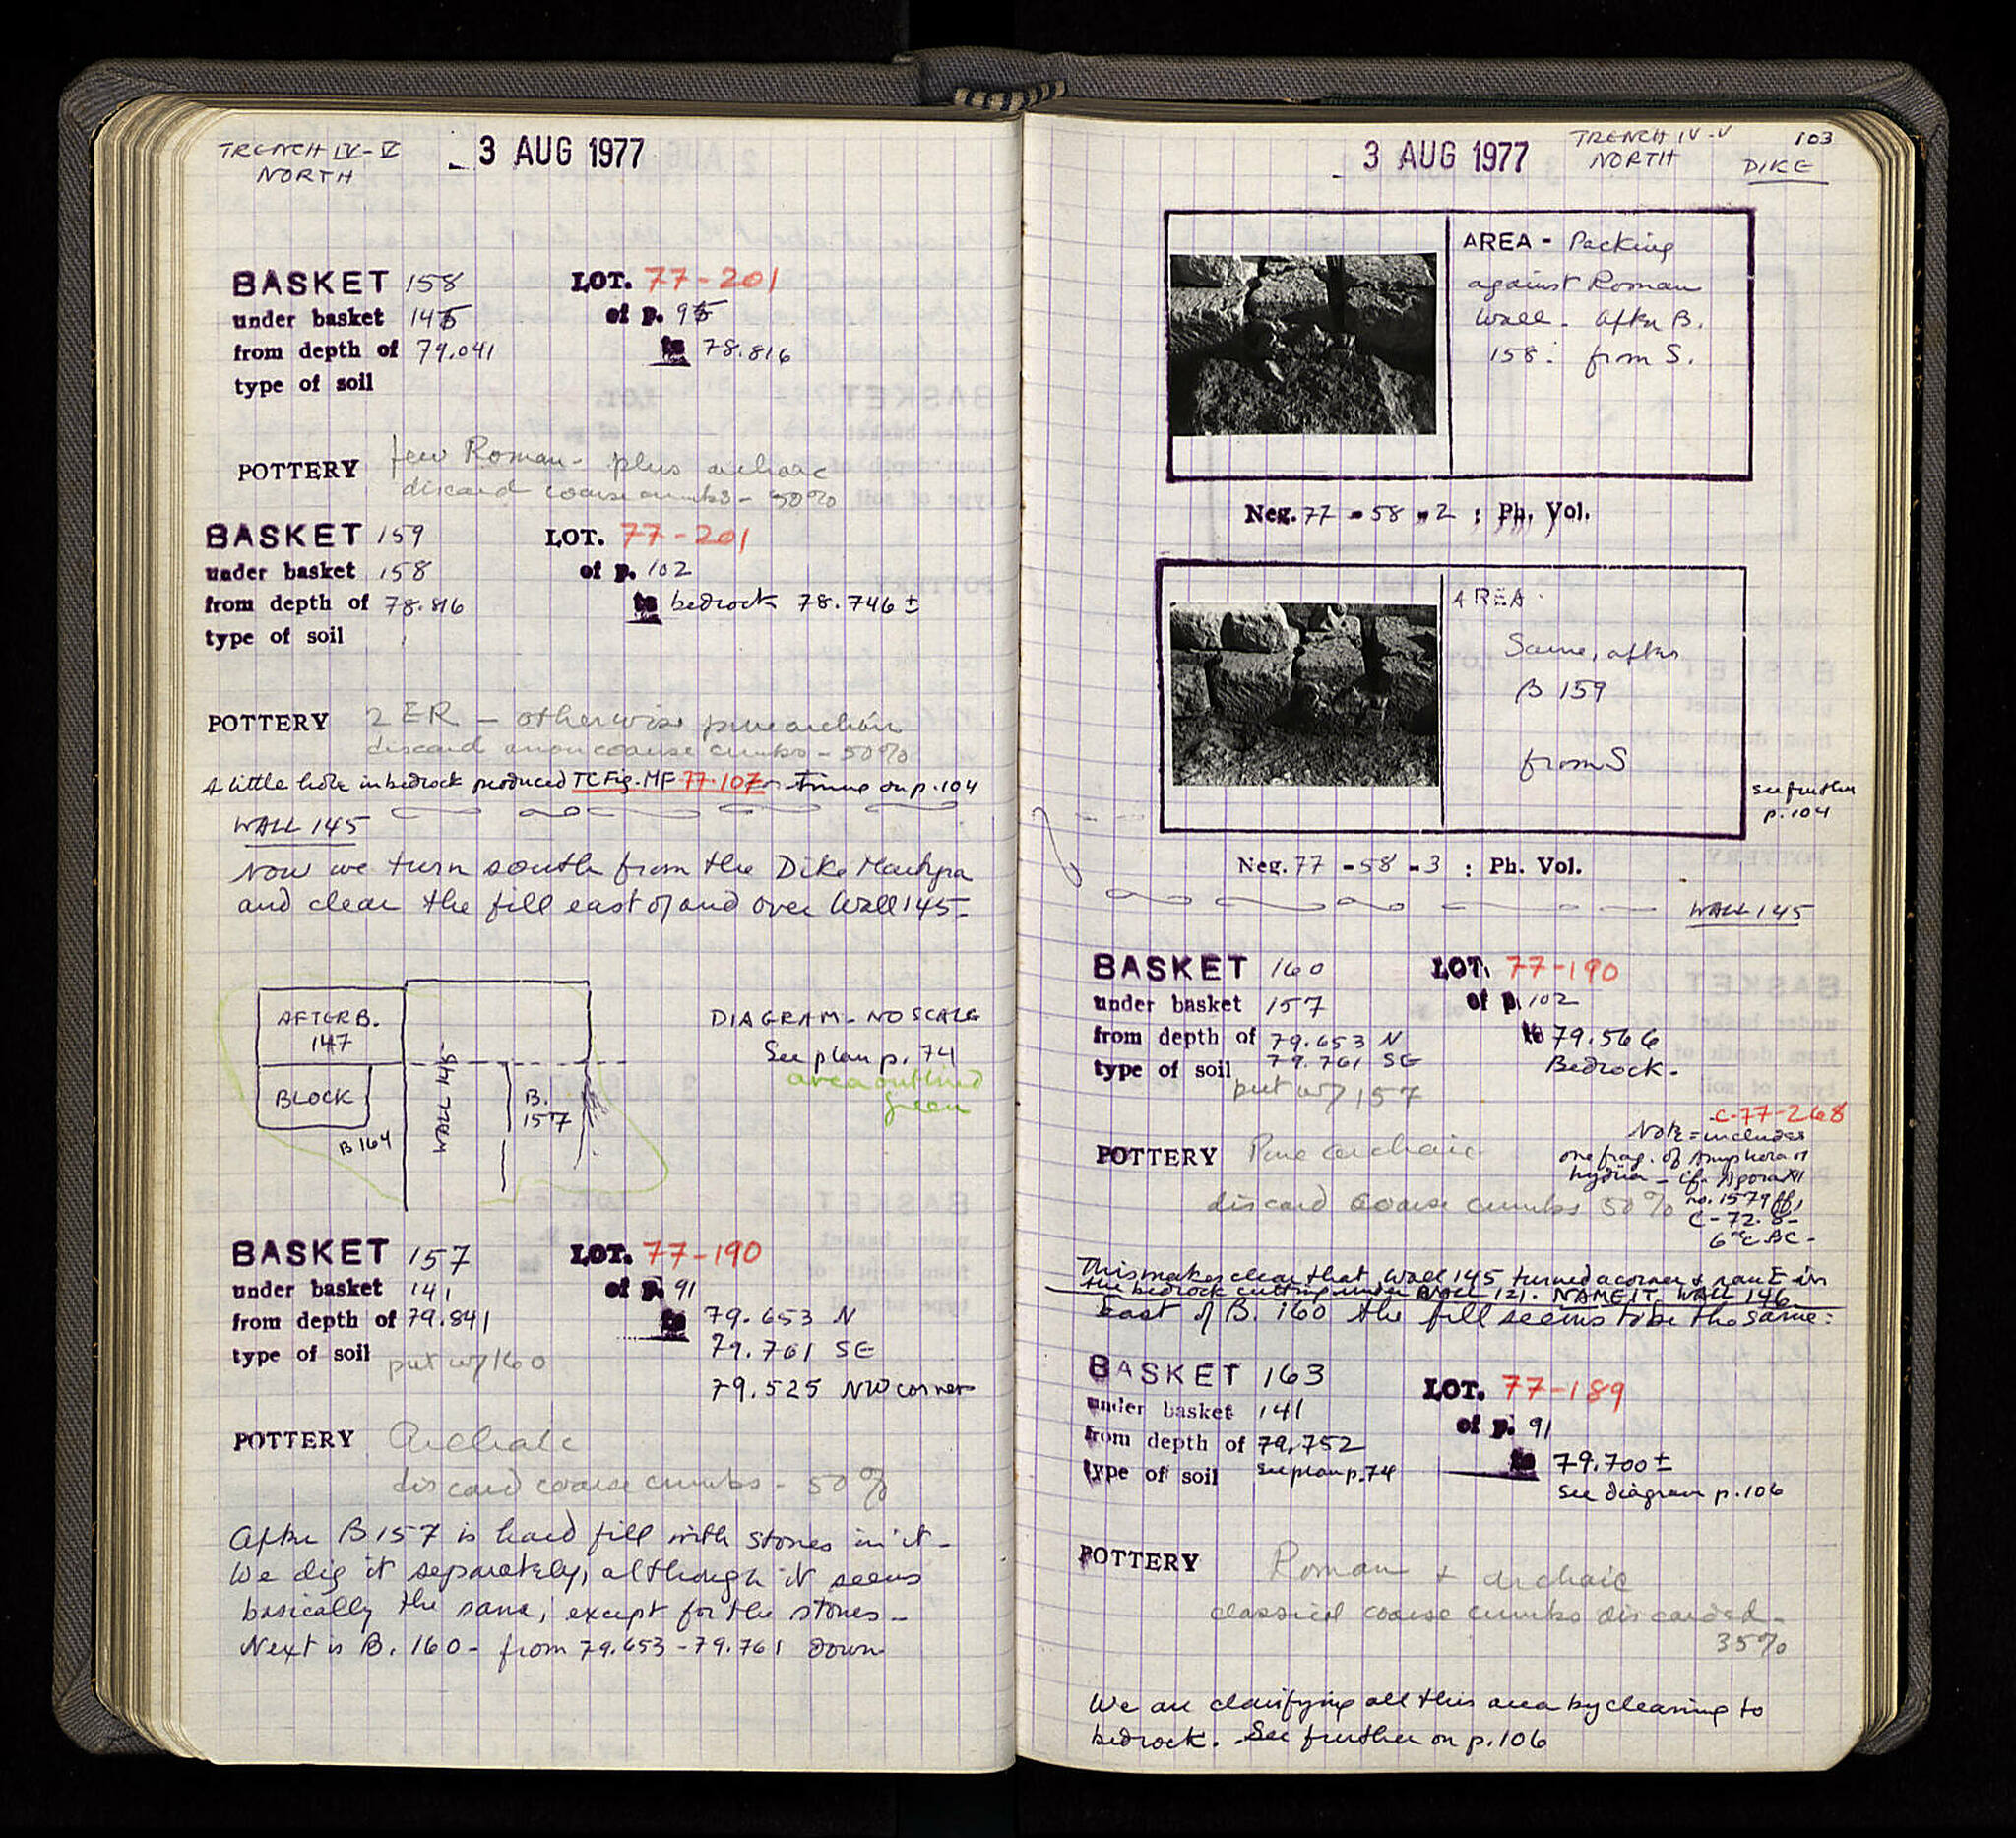 TRENCH IV-V
NORTH
3 AUG 1977
BASKET 158 LOT. 77-201
under basket 145 of p. 95
from depth of 79.041 to 78.816
type of soil
POTTERY few Roman - plus archaic
discard coarse crumbs - 50%
BASKET 159 LOT. 77-201
under basket 158 of p. 102
from depth of 78.816 to bedrock 78.746 ±
type of soil
POTTERY 2 ER - otherwise pure archaic
discard coarse crumbs - 50%
A little hole in bedrock produced TC Fig. MF 77-107 on p. 104
WALL 145
Now we turn south from the Dike
and clear the fill east of and over Wall 145-
AFTER B.
147
BLOCK
B 164
WALL 145
B.
157
DIAGRAM - NO SCALE
See plan p. 74
area outlined
green
BASKET 157 LOT. 77-190
under basket 141 of p. 91
from depth of 79.841 to 79.653 N
79.761 SE
type of soil put w/ 160
79.525 NW corner
POTTERY Archaic
discard coarse crumbs - 50%
After B 157 is hard fill with stones in it -
We dig it separately, although it seems
basically the same, except for the stones -
Next is B. 160 - from 79.653 - 79.761 down
3 AUG 1977
TRENCH IV-V
NORTH
103
DIKE
AREA - Packing
against Roman
Wall - After B.
158: from S.
Neg. 77 - 58 - 2 : Ph. Vol.
AREA -
Same, after
B 159
from S
see further
p. 104
Neg. 77 - 58 - 3 : Ph. Vol.
WALL 145
BASKET 160 LOT. 77-190
under basket 157 of p. 102
from depth of 79.653 N to 79.566
79.761 SE Bedrock -
type of soil put w/ 157
C-77-268
Note = includes
one frag. of Amphora or
hydria - cf. Agora XII
no. 1579 ff,
C-72-8-
6th c BC -
POTTERY Pure archaic
discard coarse crumbs 50%
This makes clear that Wall 145 turned a corner & ran E in
the bedrock cutting under Wall 121. NAME IT WALL 146
East of B. 160 the fill seems to be the same:
BASKET 163 LOT. 77-189
under basket 141 of p. 91
from depth of 79.752 to 79.700 ±
type of soil see plan p. 74 See diagram p. 106
POTTERY Roman + archaic
classical coarse crumbs discarded -
35%
We are clarifying all this area by clearing to
bedrock. See further on p. 106